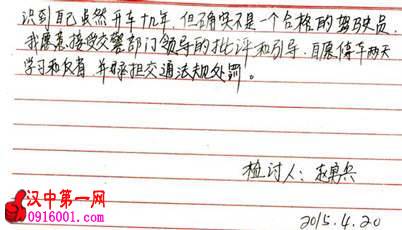 识到自己虽然开车十几年,但确实不是一个合格的驾驶员.
我愿意接受交警部门领导的批评和引导.自愿停车两天
学习和反省.并承担交通法规处罚。
检讨人:赵
2015.4.20
汉中第一网
0916001.com